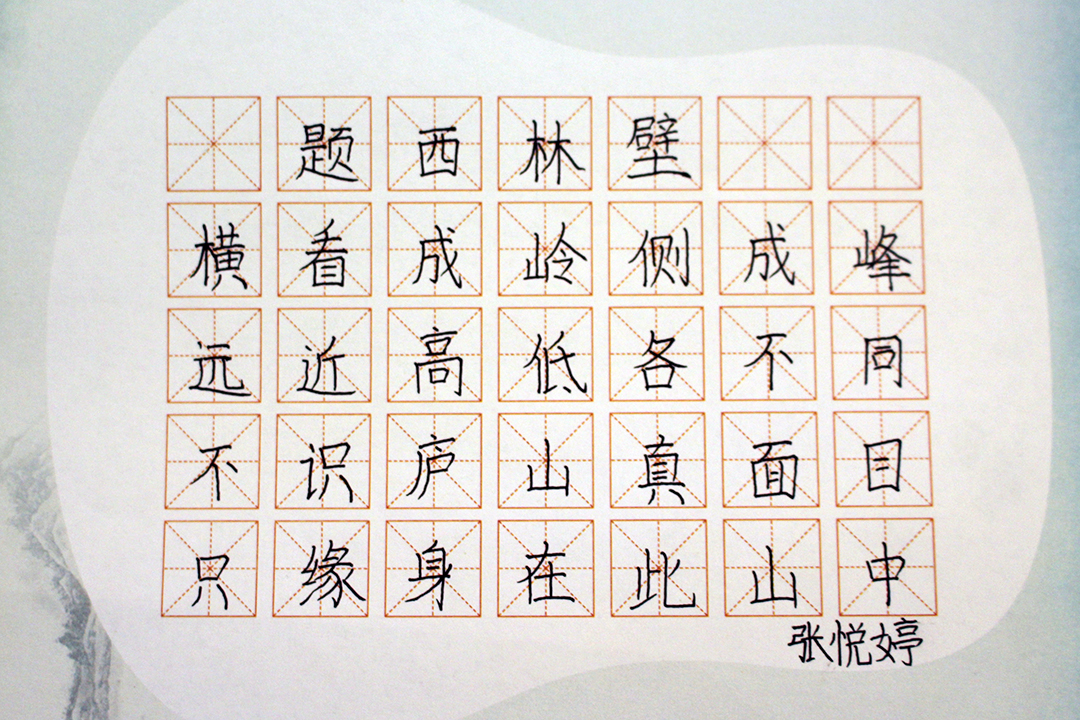 题西林壁
横看成岭侧成峰
远近高低各不同
不识庐山真面目
只缘身在此山中
张悦婷